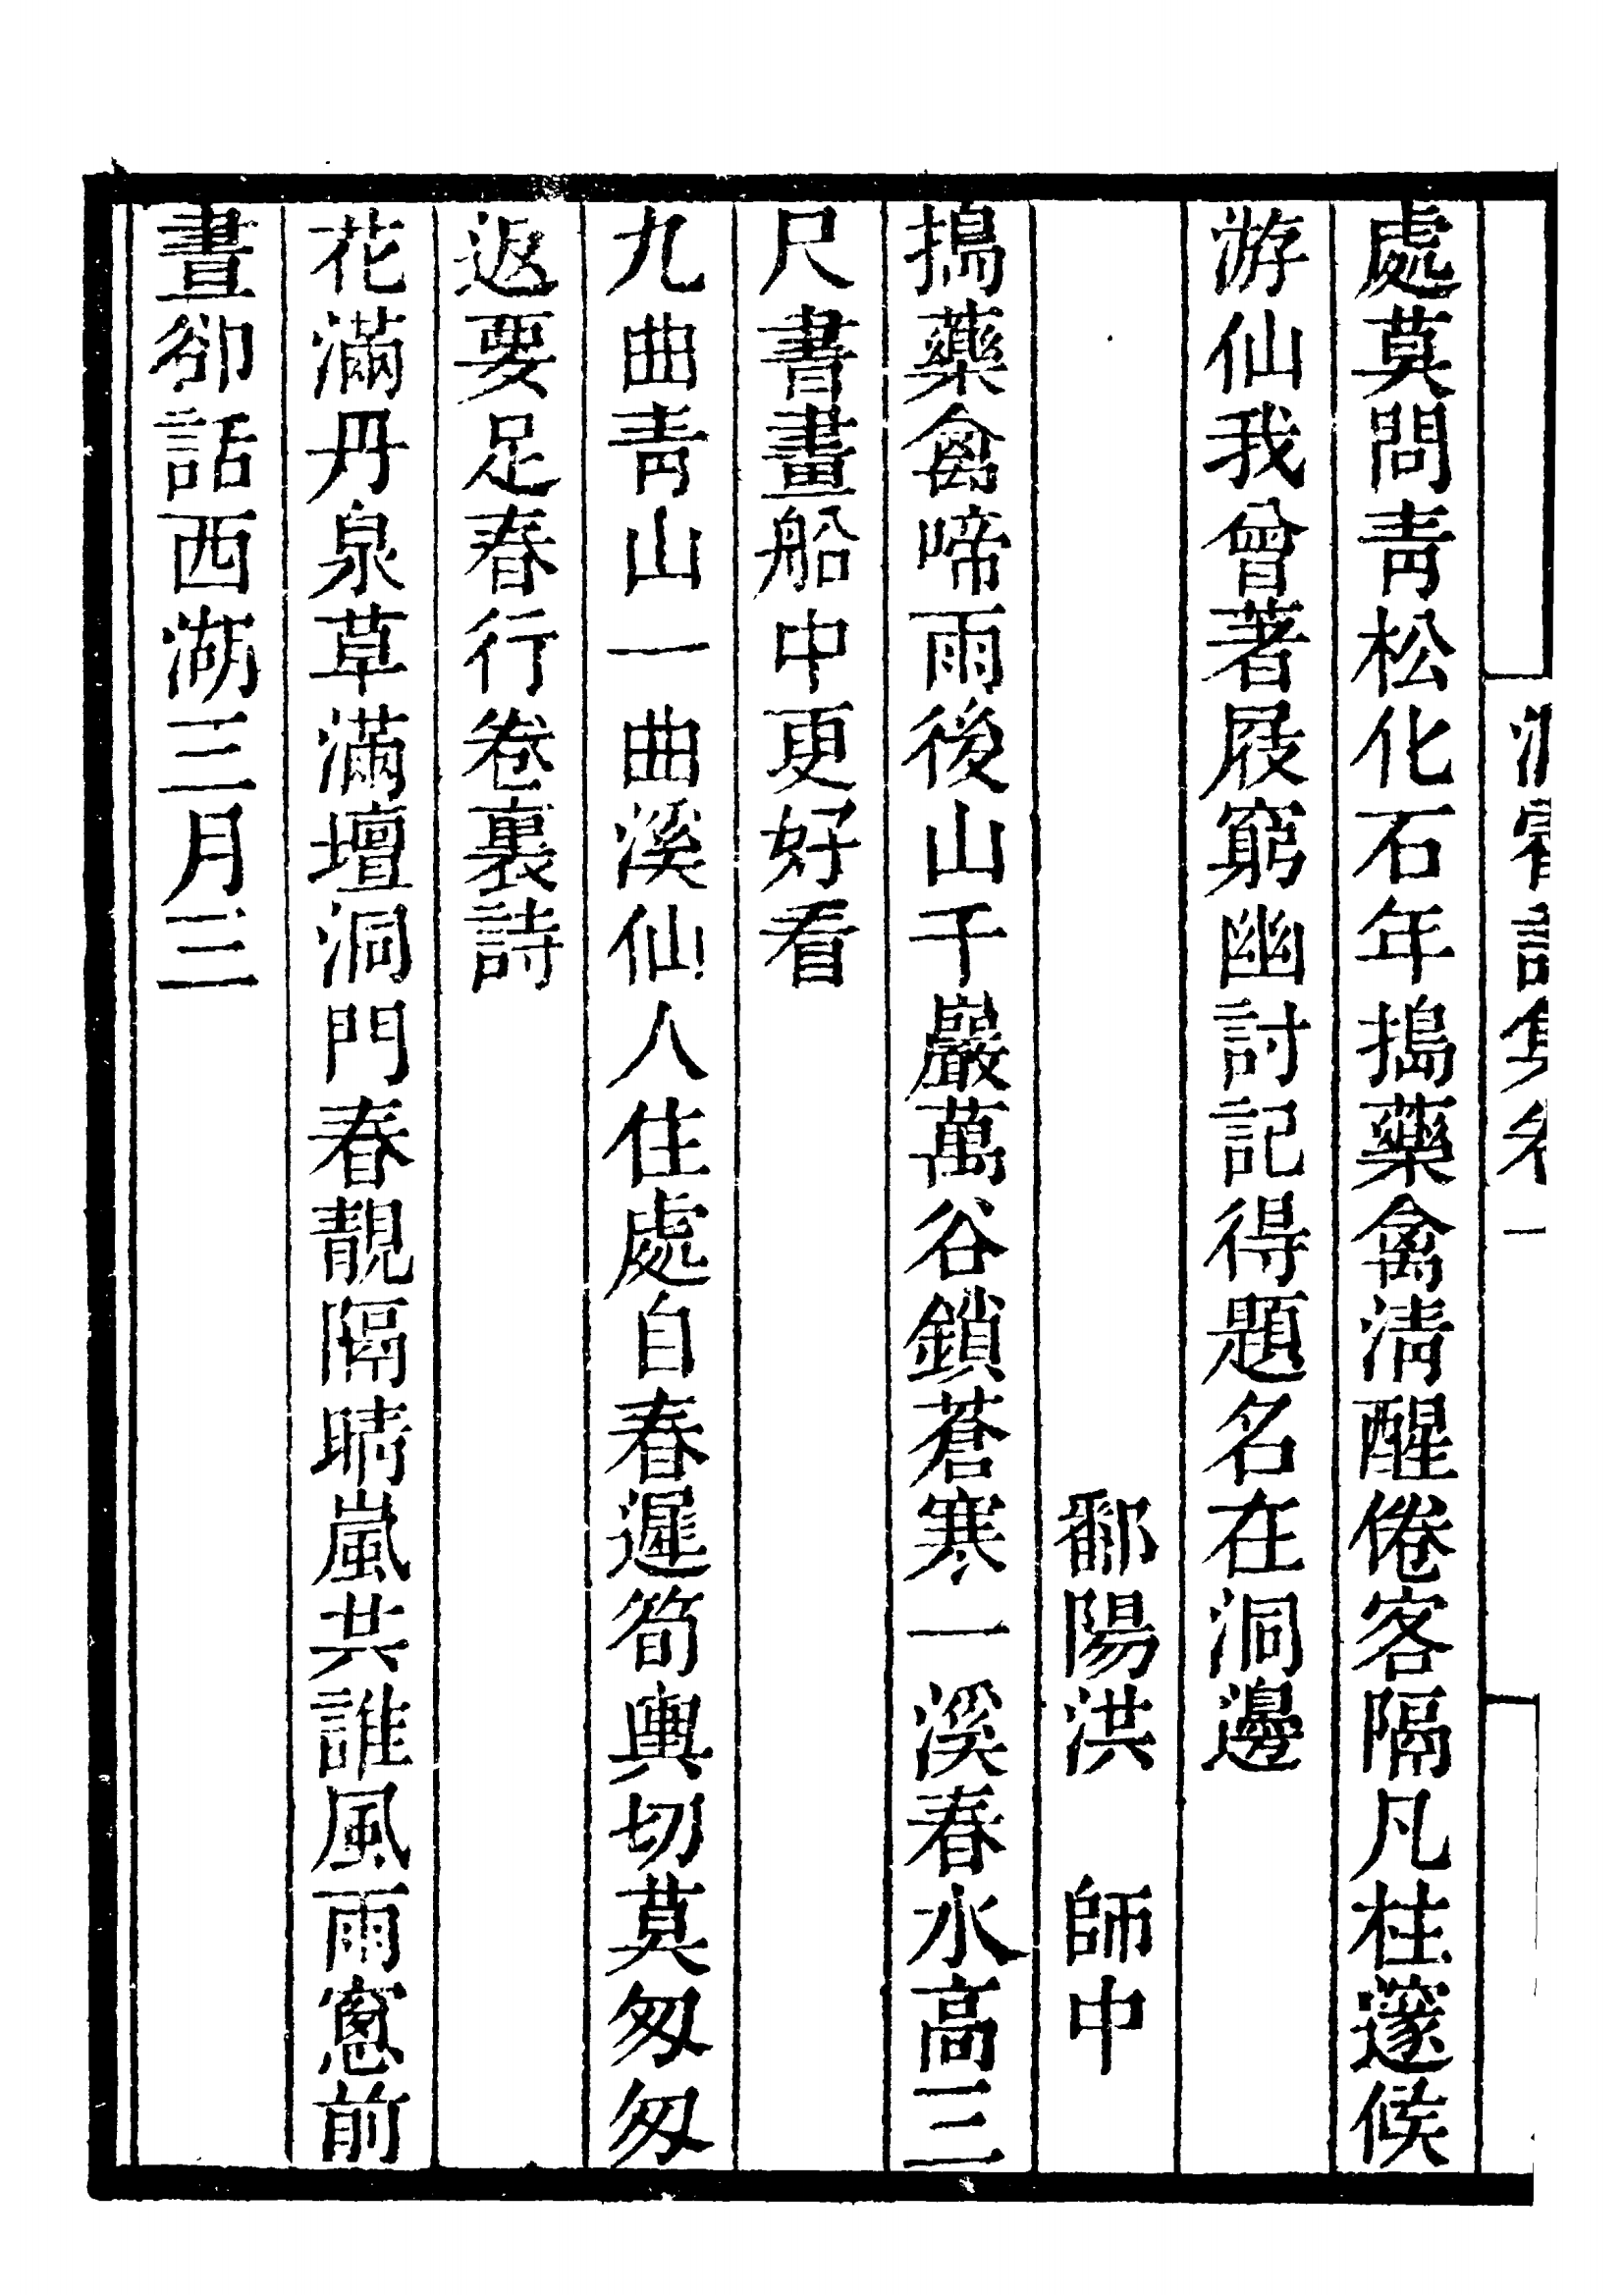 洞霄詩集卷一
處莫問靑松化石年搗藥禽淸醒倦客隔凡柱邃候
游仙我曾著屐窮幽討記得題名在洞邊
鄱陽洪　師中
搗藥禽啼雨後山千巖萬谷鎖蒼寒一溪春水高三
尺書畫船中更好看
九曲靑山一曲溪仙人住處自春遲筍輿切莫匆匆
返要足春行卷裏詩
花滿丹泉草滿壇洞門春靚隔晴嵐共誰風雨窻前
晝卻話西湖三月三